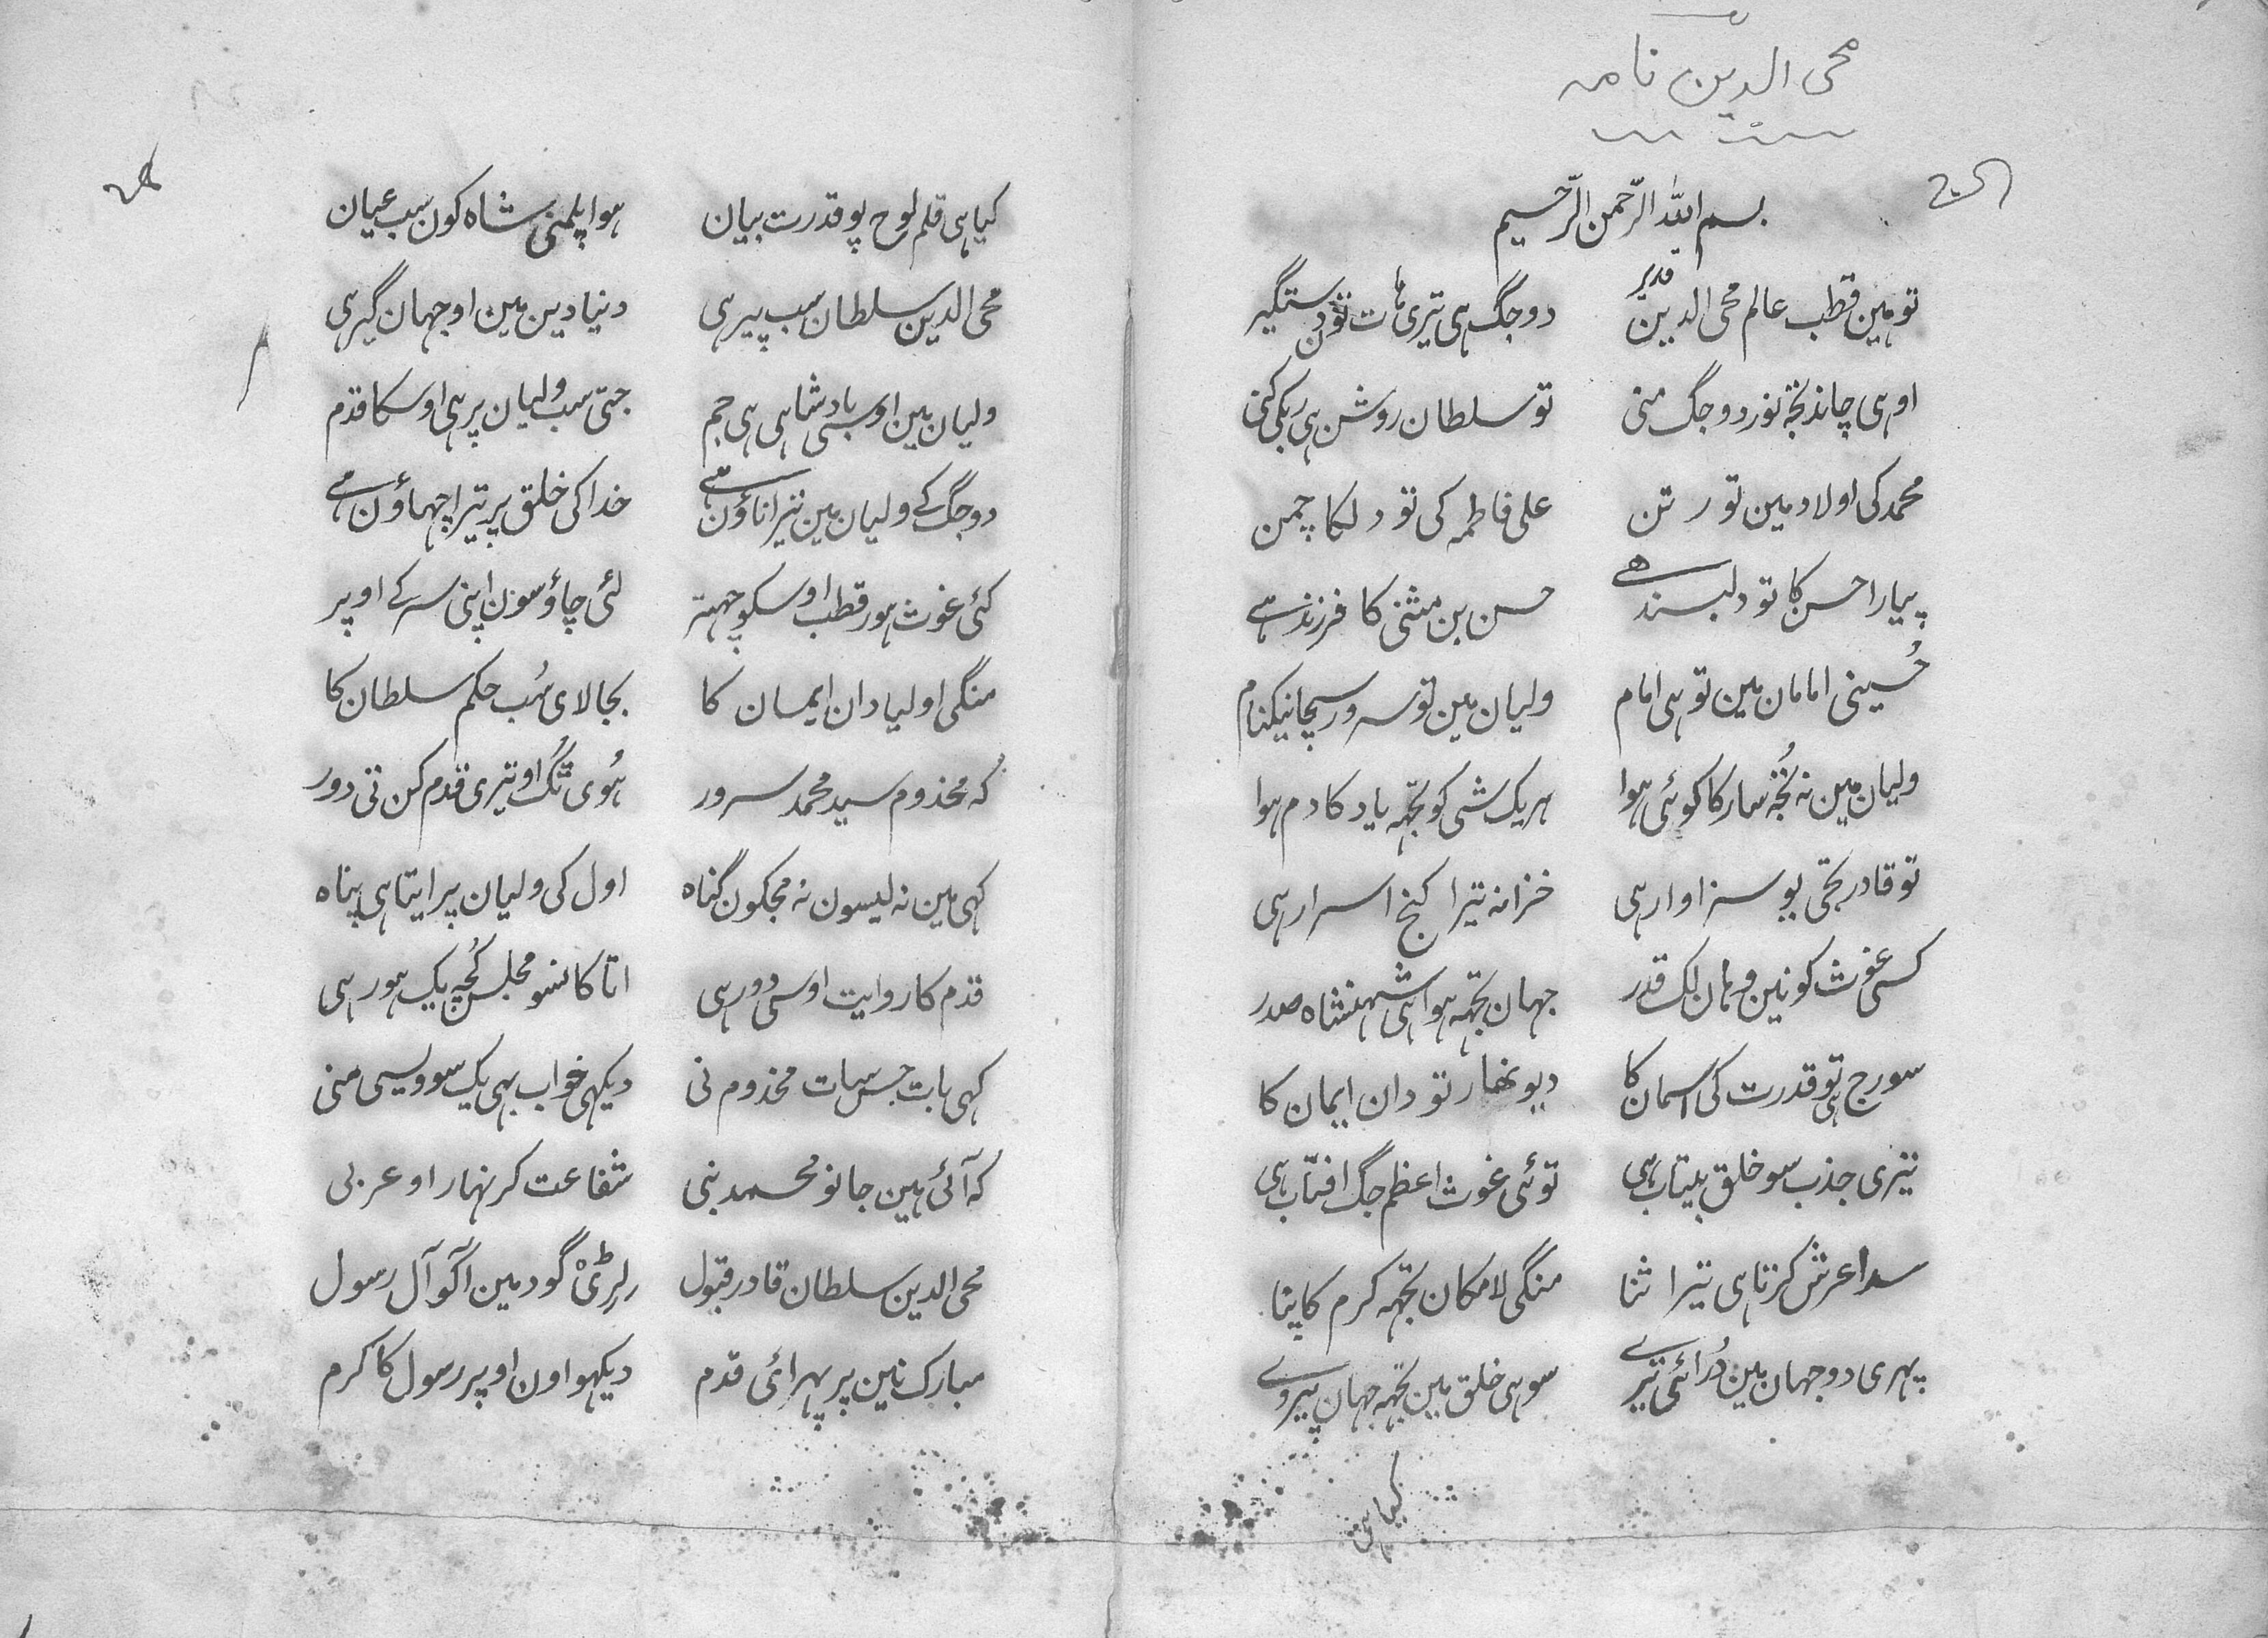 محی الدین نامہ
بسم اللہ الرّحمن الرّحیم
تو مین قطب عالم محی الدین قدیر دو جگ ہی تیری ہات تون دستگیر
او ہی چاند تجہ نور دو جگ منی تو سلطان روشن ہی
محمد کی اولاد مین تو رتن علی فاطمہ کی تو دلکا چمن
پیارا حسن کا تو دلبند ہے حسن بن مثنی کا فرزند ہے
حُسینی امامان مین تو ہی امام ولیان مین تو سرور سچا نیکنام
ولیان مین نہ تُجہ سارکا کوئی ہوا ہریک شی کو تجہہ یاد کا دم ہوا
تو قادر تجی یو سزاوار ہی خزانہ تیرا کنج اسرار ہی
کسی غوث کو نین وہان لک قدر جہان تجہہ ہوا ہی شہنشاہ صدر
سورج ہی تو قدرت کی اسمان کا دیونہار تو دان ایمان کا
تیری جذب سو خلق بیتاب ہی توئی غوث اعظم جگ افتاب ہی
سدا عرش کرتا ہی تیرا ثنا منگی لامکان تجہہ کرم کا پنا
پہری دو جہان مین دُرائی تیرے سو ہی خلق مین تجہہ جہان پیروے
کیا ہی
کیا ہی قلم لوح پو قدرت بیان ہوا پلمنی شاہ کون سب عیان
محی الدین سلطان سب پیر ہی دنیا دین مین او جہان گیر ہی
ولیان مین اوسی بادشاہی ہی جم جتی سب ولیان پر ہی اوسکا قدم
دو جگ کے ولیان مین تیرا ناؤن ہے خدا کی خلق پر تیرا چہاؤن ہے
کئی غوث ہور قطب اوسکو چہتر لئی چاؤ سون اپنی سر کے اوپر
منگی اولیا دان ایمان کا بجا لای سُب حکم سلطان کا
کُہ مخذوم سید محمد سرور ہُوی تگ او تیری قدم کن تی دور
کہی مین نہ لیسون نہ مجکون گناہ اول کی ولیان پر ایتا ہی پناہ
قدم کا روایت اوسی دور ہی اتا کا سنو مجلس کُچہ یک ہور ہی
کہی بات جس سات مخذوم نی دیکہی خواب بہی یک سو ویسی منی
کُہ آئی ہین جانو محمد نبی شفاعت کرنہار او عربی
محی الدین سلطان قادر قبول گود مین اگو آل رسول
مبارک نین پر پہرائی قدم دیکہو اون اوپر رسول کا کرم